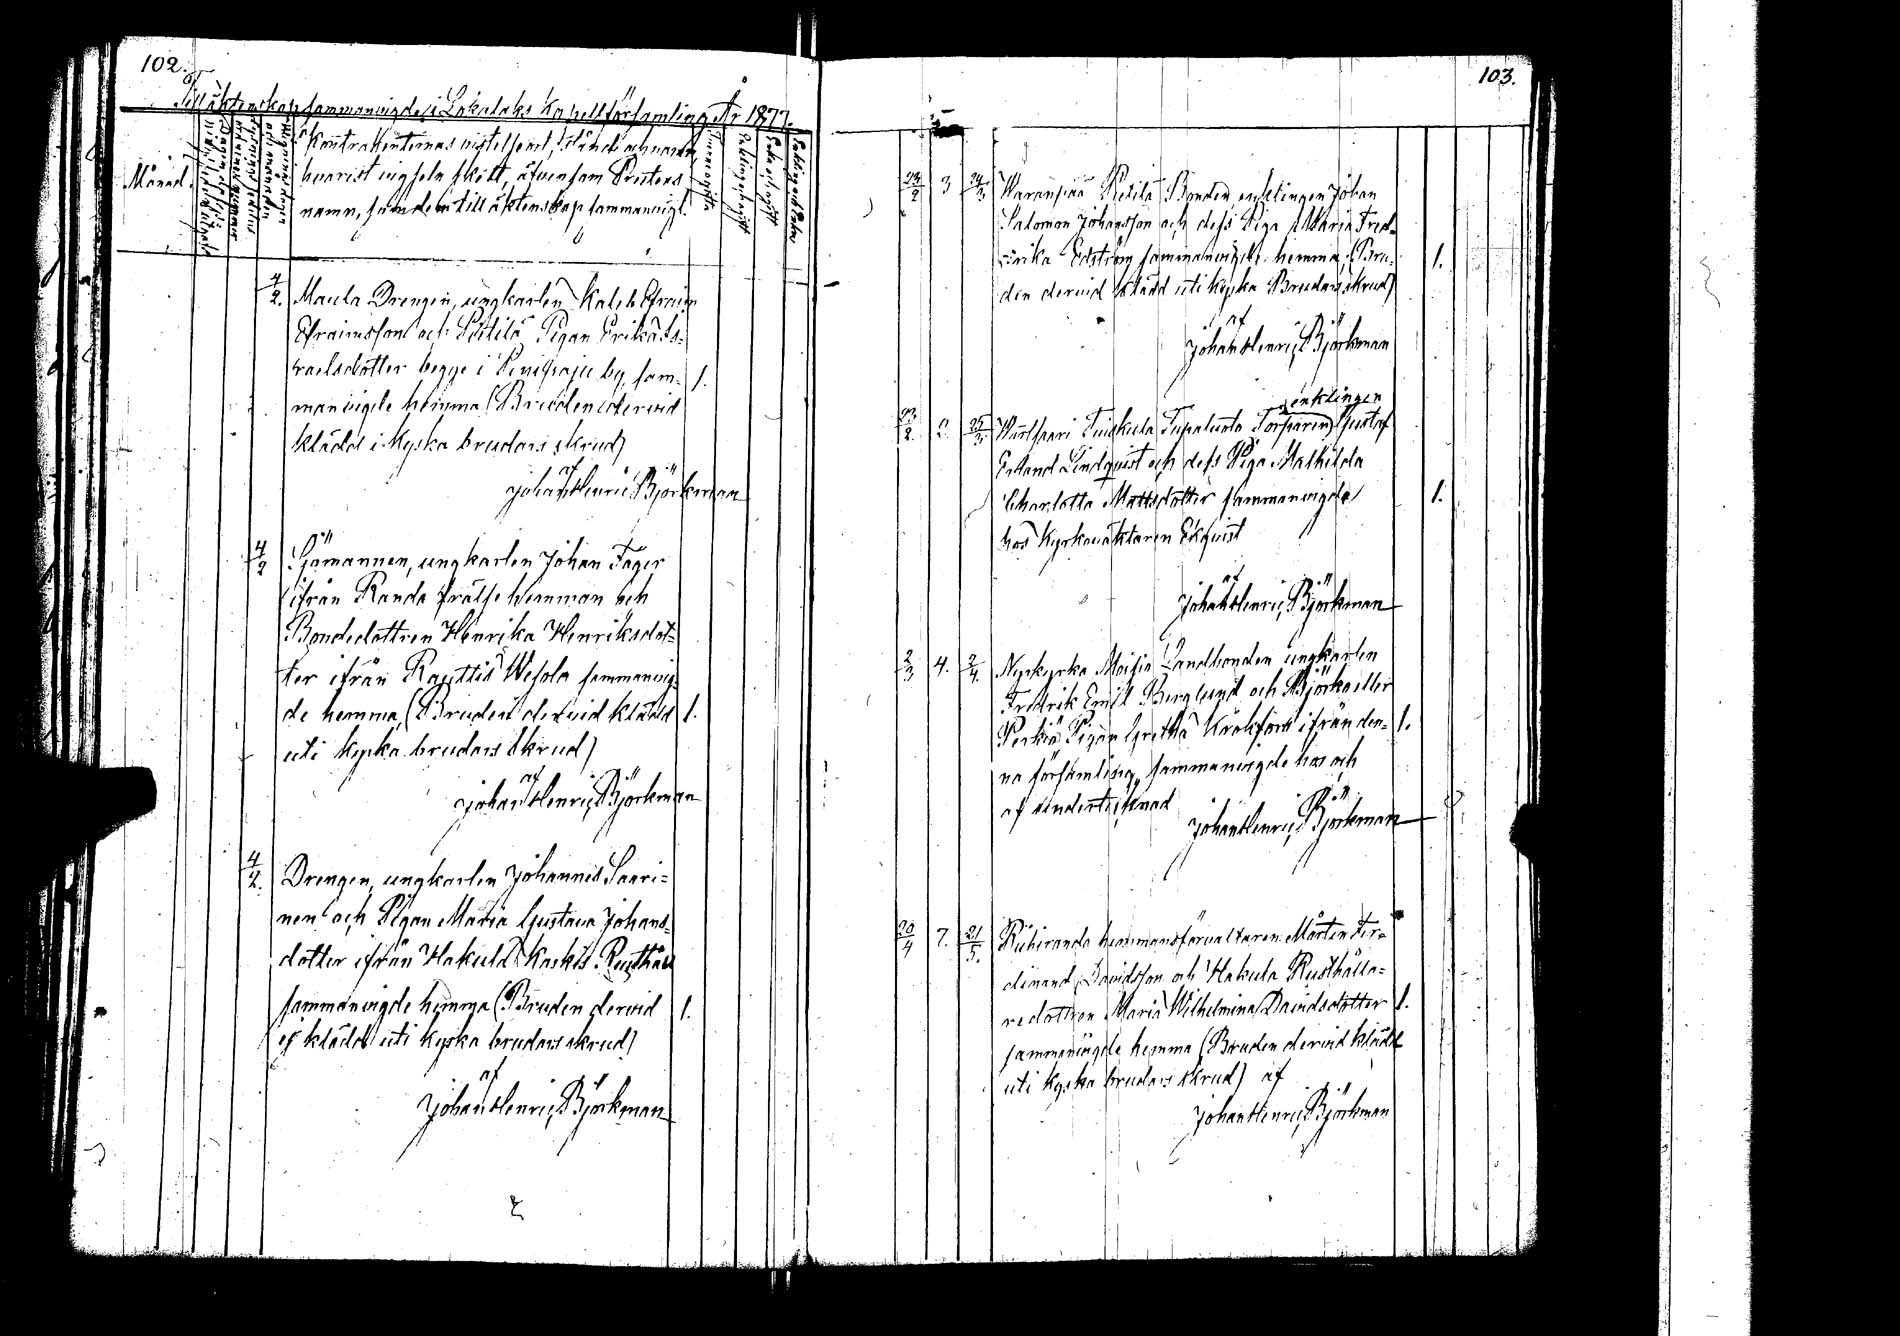 102.
Till äktenskap sammanvigde i Lokalaks Kapellförsamling År 1877.
Månad.
Kontrahenternas vistelseort, stånd och namn,
hvarest vigseln skett, äfvensom Prestens
namn, som dem till äktenskap sammanvigt.
4/2. Maula Drengen, ungkarlen Kaleb Efraim
Efraimsson och Pietilä Pigan Erika Is-
raelsdotter begge i by, sam- 1.
manvigde hemma (Bruden dervid
klädd i kyska brudars skrud)
af
Johan Henric Björkman
4/2 Sjömannen, ungkarlen Johan Fager
ifrån Randa frälse hemman och
Bondedottren Henrika Henriksdot-
ter ifrån Rauttis Wesola sammanvig-
de hemma, (Bruden dervid klädd 1.
uti kyska brudars skrud)
af
Johan Henric Björkman
4/2. Drengen, ungkarlen Johannes Saari=
nen och Pigan Maria Gustava Johans-
dotter ifrån Hakula Kaskis Rusthåll
sammanvigde hemma (Bruden dervid 1.
ej klädd uti kyska brudars skrud)
af
Johan Henric Björkman
103.
23/2 3 24/3 Waranpää Pietilä Bonden enklingen Johan
Salomon Johansson och dess Piga Maria Fred-
rika Edström sammanvigde hemma, (Bru- 1.
den dervid klädd uti kyska Brudars skrud)
af
Johan Henric Björkman
enklingen
23/2. 2. 25/3. Tuiskula Torparen Gustaf
Erland Lindquist och dess Piga Mathilda
Charlotta Mattsdotter sammanvigde 1.
hos Kyrkoväktaren Ekquist
af
Johan Henric Björkman
2/3 4. 2/4. Nykyrka Moisio Landbonden ungkarlen
Fredrik Emil Berglund och Björko eller
Pigan Gretha Krökfors ifrån den- 1.
na församling, sammanvigde hos och
af undertecknad
Johan Henric Björkman
20/4 7. 21/5. Riihiranda hemmansförvaltaren Mårten Fer=
dinand Davidsson och Hakula Rusthålla=
redottren Maria Wilhelmina Davidsdotter 1.
sammanvigde hemma (Bruden dervid klädd
uti kyska brudars skrud) af
Johan Henric Björkman